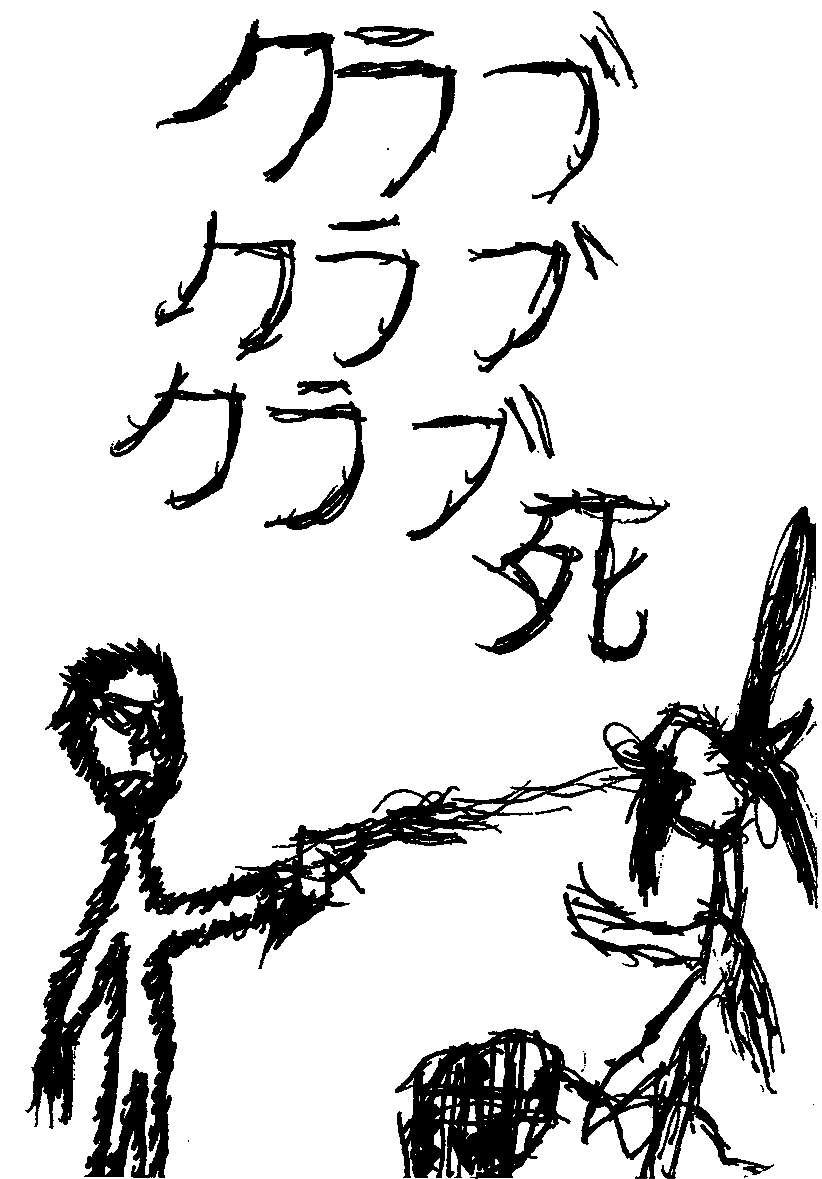 クラブ
クラブ
クラブ
死